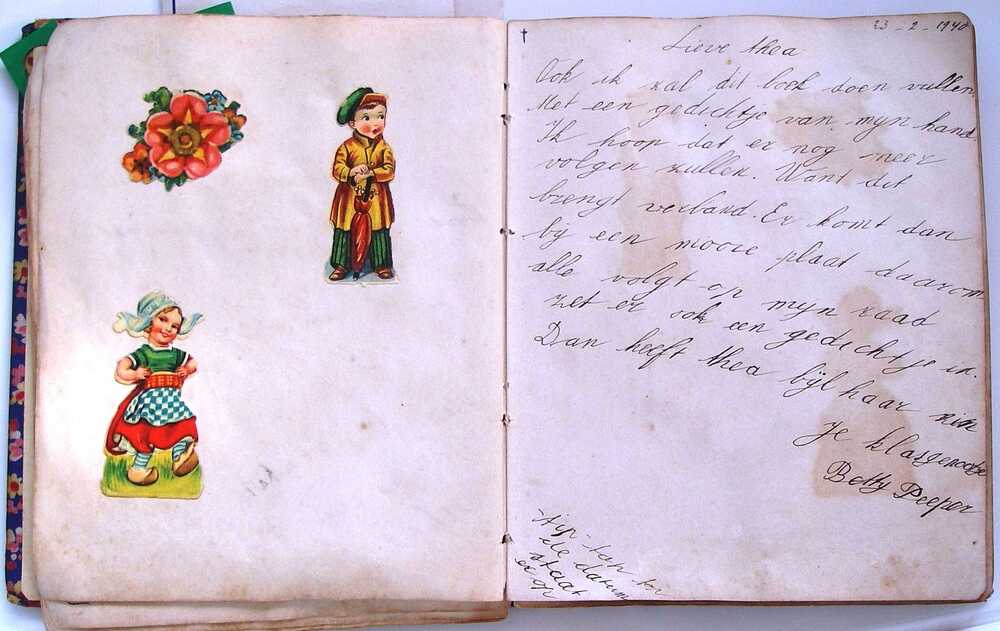 23 - 2 - 1940
Lieve thea
Ook ik zal dit boek doen vullen.
Met een gedichtje van mijn hand.
Ik hoop dat er nog meer
volgen zullen. Want dit
brengt verband. Er komt dan
bij een mooie plaat daarom
alle volgt op mijn raad
zet er ook een gedichtje in.
Dan heeft thea bijl haar zin
Je klasgenootje
Betty Peeper
tip-tap-top
de datum
staat
er op